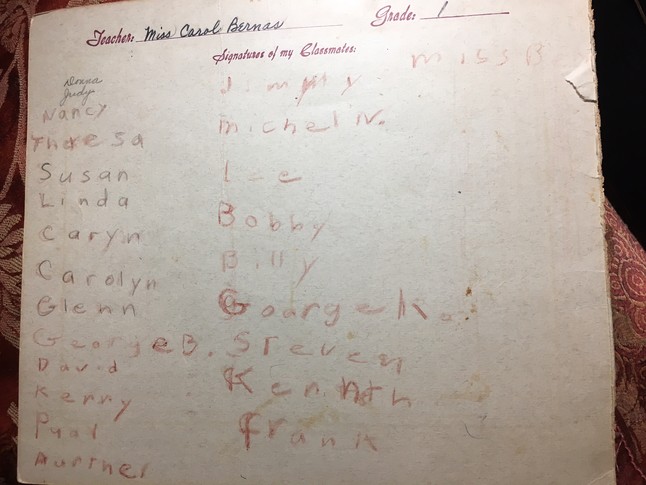 Teacher: Miss Carol Bernas Grade: 1
Signatures of my Classmates:
Miss B
Donna
Judy
Nancy
Tharesa
Susan
Linda
Caryn
Carolyn
Glenn
George B.
David
Kerry
Pual
Jimmy
Michel N.
Lee
Bobby
Billy
Goarge K.
Steven
Kennth
Frank